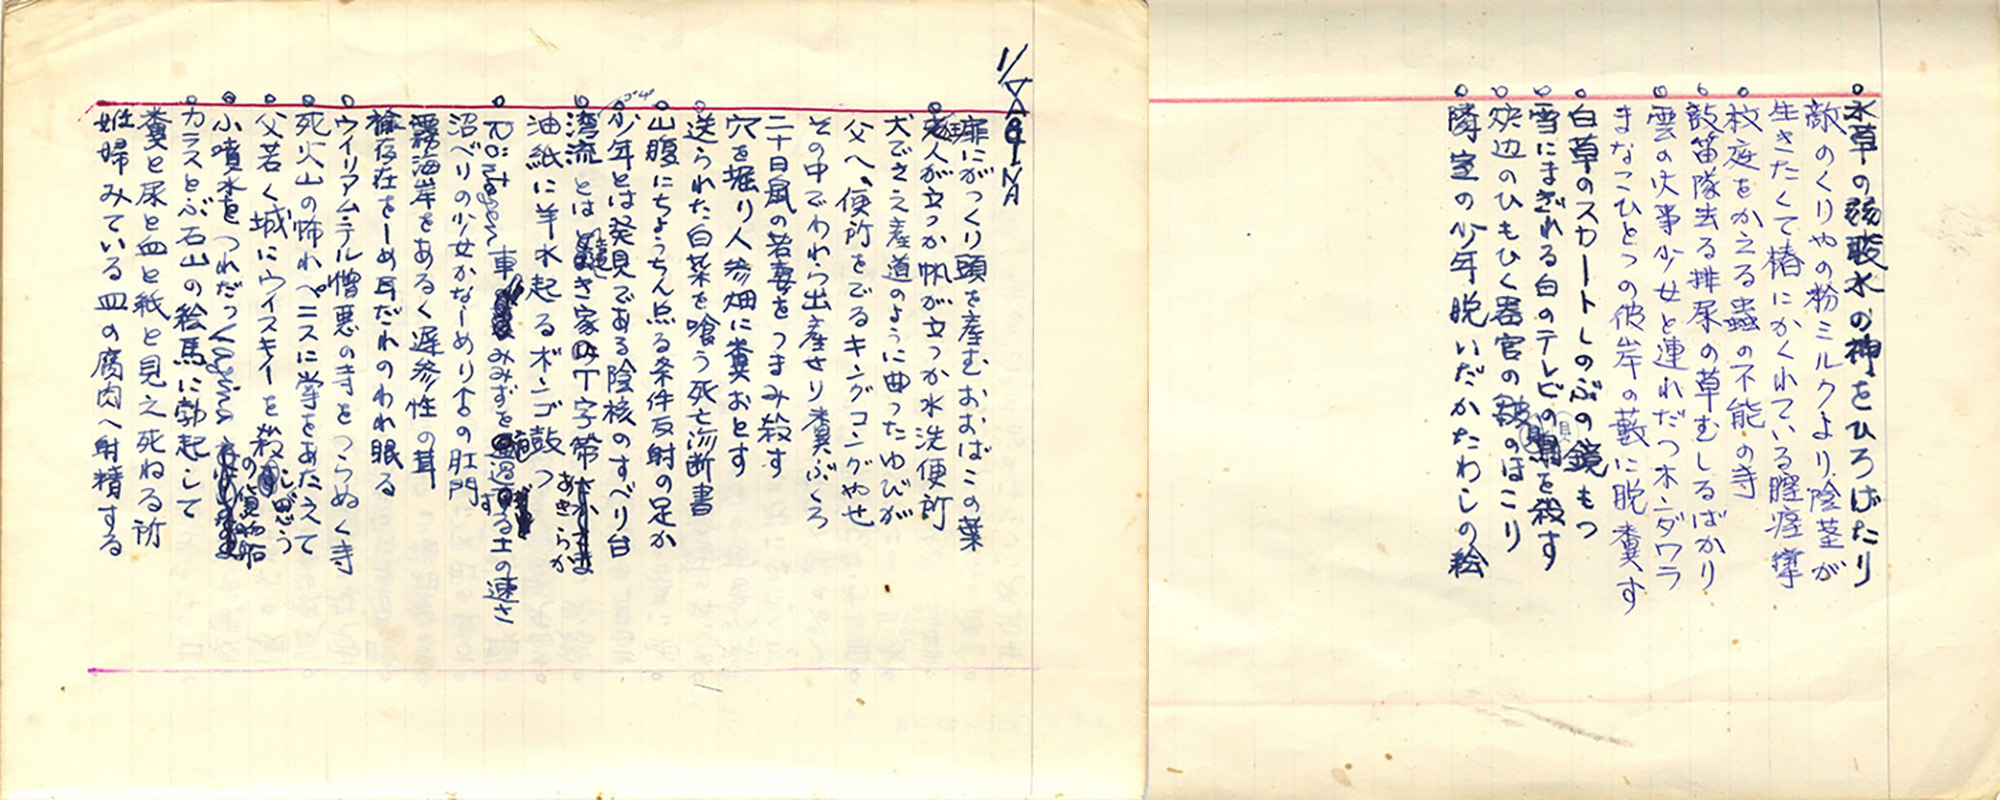 水草の弱酸水の神をひろげたり
敵のくりやの粉ミルクより陰茎が
生きたくて椿にかくれている膣痙攣
校庭をかえる蟲の不能の寺
鼓笛隊去る排尿の草むしるばかり
雲の火事少女と連れだつホンダワラ
まなこひとつの彼岸の藪に脱糞す
白草のスカートしのぶの鏡もつ
雪にまぎれる白のテレビの を殺す
炉辺のひもひく器官の鼓のほこり
隣室の少年脱いだかたわしの絵
扉にがつくり頭を産むおおばこの葉
人が立つか帆が立つか水洗便所
犬でさえ産道のように曲つたゆびが
父へ、便所をでるキングコングやせ
その中でわれら出産せり糞ぶくろ
二十日鼠の若妻をつまみ殺す
穴を堀り人参畑に糞おとす
送られた白菜を喰う死亡診断書
山腹にちようちん点る条件反射の足か
少年とは発見である陰核のすべり台
湾流とは き家の丁字帯 あきらか
油紙に羊水起るボンゴ鼓つ
車 みみずを過 する土の速さ
沼べりの少女かなしめり舎の肛門
霧海岸をあるく遅参性の茸
存在をしめ耳だれのわれ眠る
ウイリアム・テル憎悪の寺をつらぬく寺
死火山の怖れペニスに学をあたえて
父若く城にウイスキーを殺 しが思う
小噴水をつれだつ vagina の
カラスとぶ石山の絵馬に勃起して
糞と尿と血と紙と見え死ねる所
妊婦みている皿の腐肉へ射精する